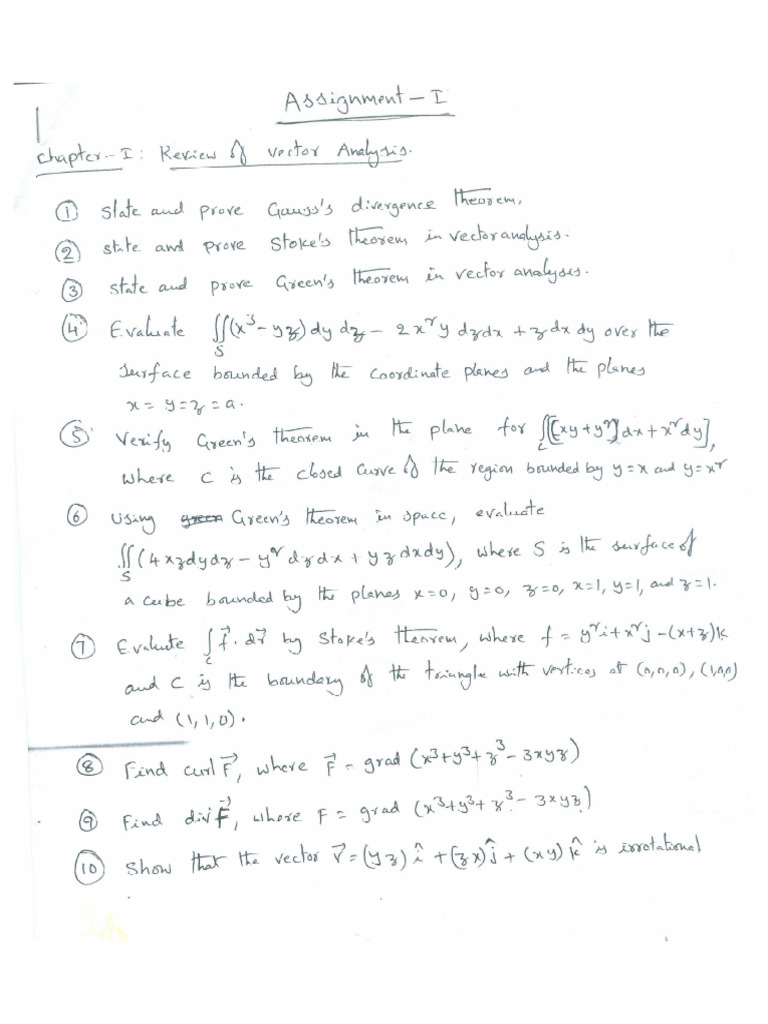 Assignment - I
Chapter - I : Review of vector Analysis.
① state and prove Gauss's divergence theorem,
② state and prove Stoke's theorem in vector analysis.
③ state and prove Green's theorem in vector analysis.
④ Evaluate ∬(x³ - yz) dy dz - 2x²y dzdx + z dx dy over the
S
surface bounded by the coordinate planes and the planes
x = y = z = a.
⑤ Verify Green's theorem in the plane for ∫[(xy + y²)dx + x²dy],
c
where C is the closed curve of the region bounded by y = x and y = x²
⑥ Using Green's theorem in space, evaluate
∬(4xzdydz - y² dzdx + yz dxdy), where S is the surface of
S
a cube bounded by the planes x=0, y=0, z=0, x=1, y=1, and z=1.
⑦ Evaluate ∫ f⃗. dr⃗ by Stoke's theorem, where f = y²i + x²j - (x+z)k
c
and C is the boundary of the triangle with vertices at (0,0,0), (1,0,0)
and (1,1,0).
⑧ Find curl F⃗, where F⃗ = grad (x³+y³+z³ - 3xyz)
⑨ Find div F⃗, where F = grad (x³+y³+z³ - 3xyz)
⑩ Show that the vector V⃗ = (yz) î + (zx) ĵ + (xy) k̂ is irrotational